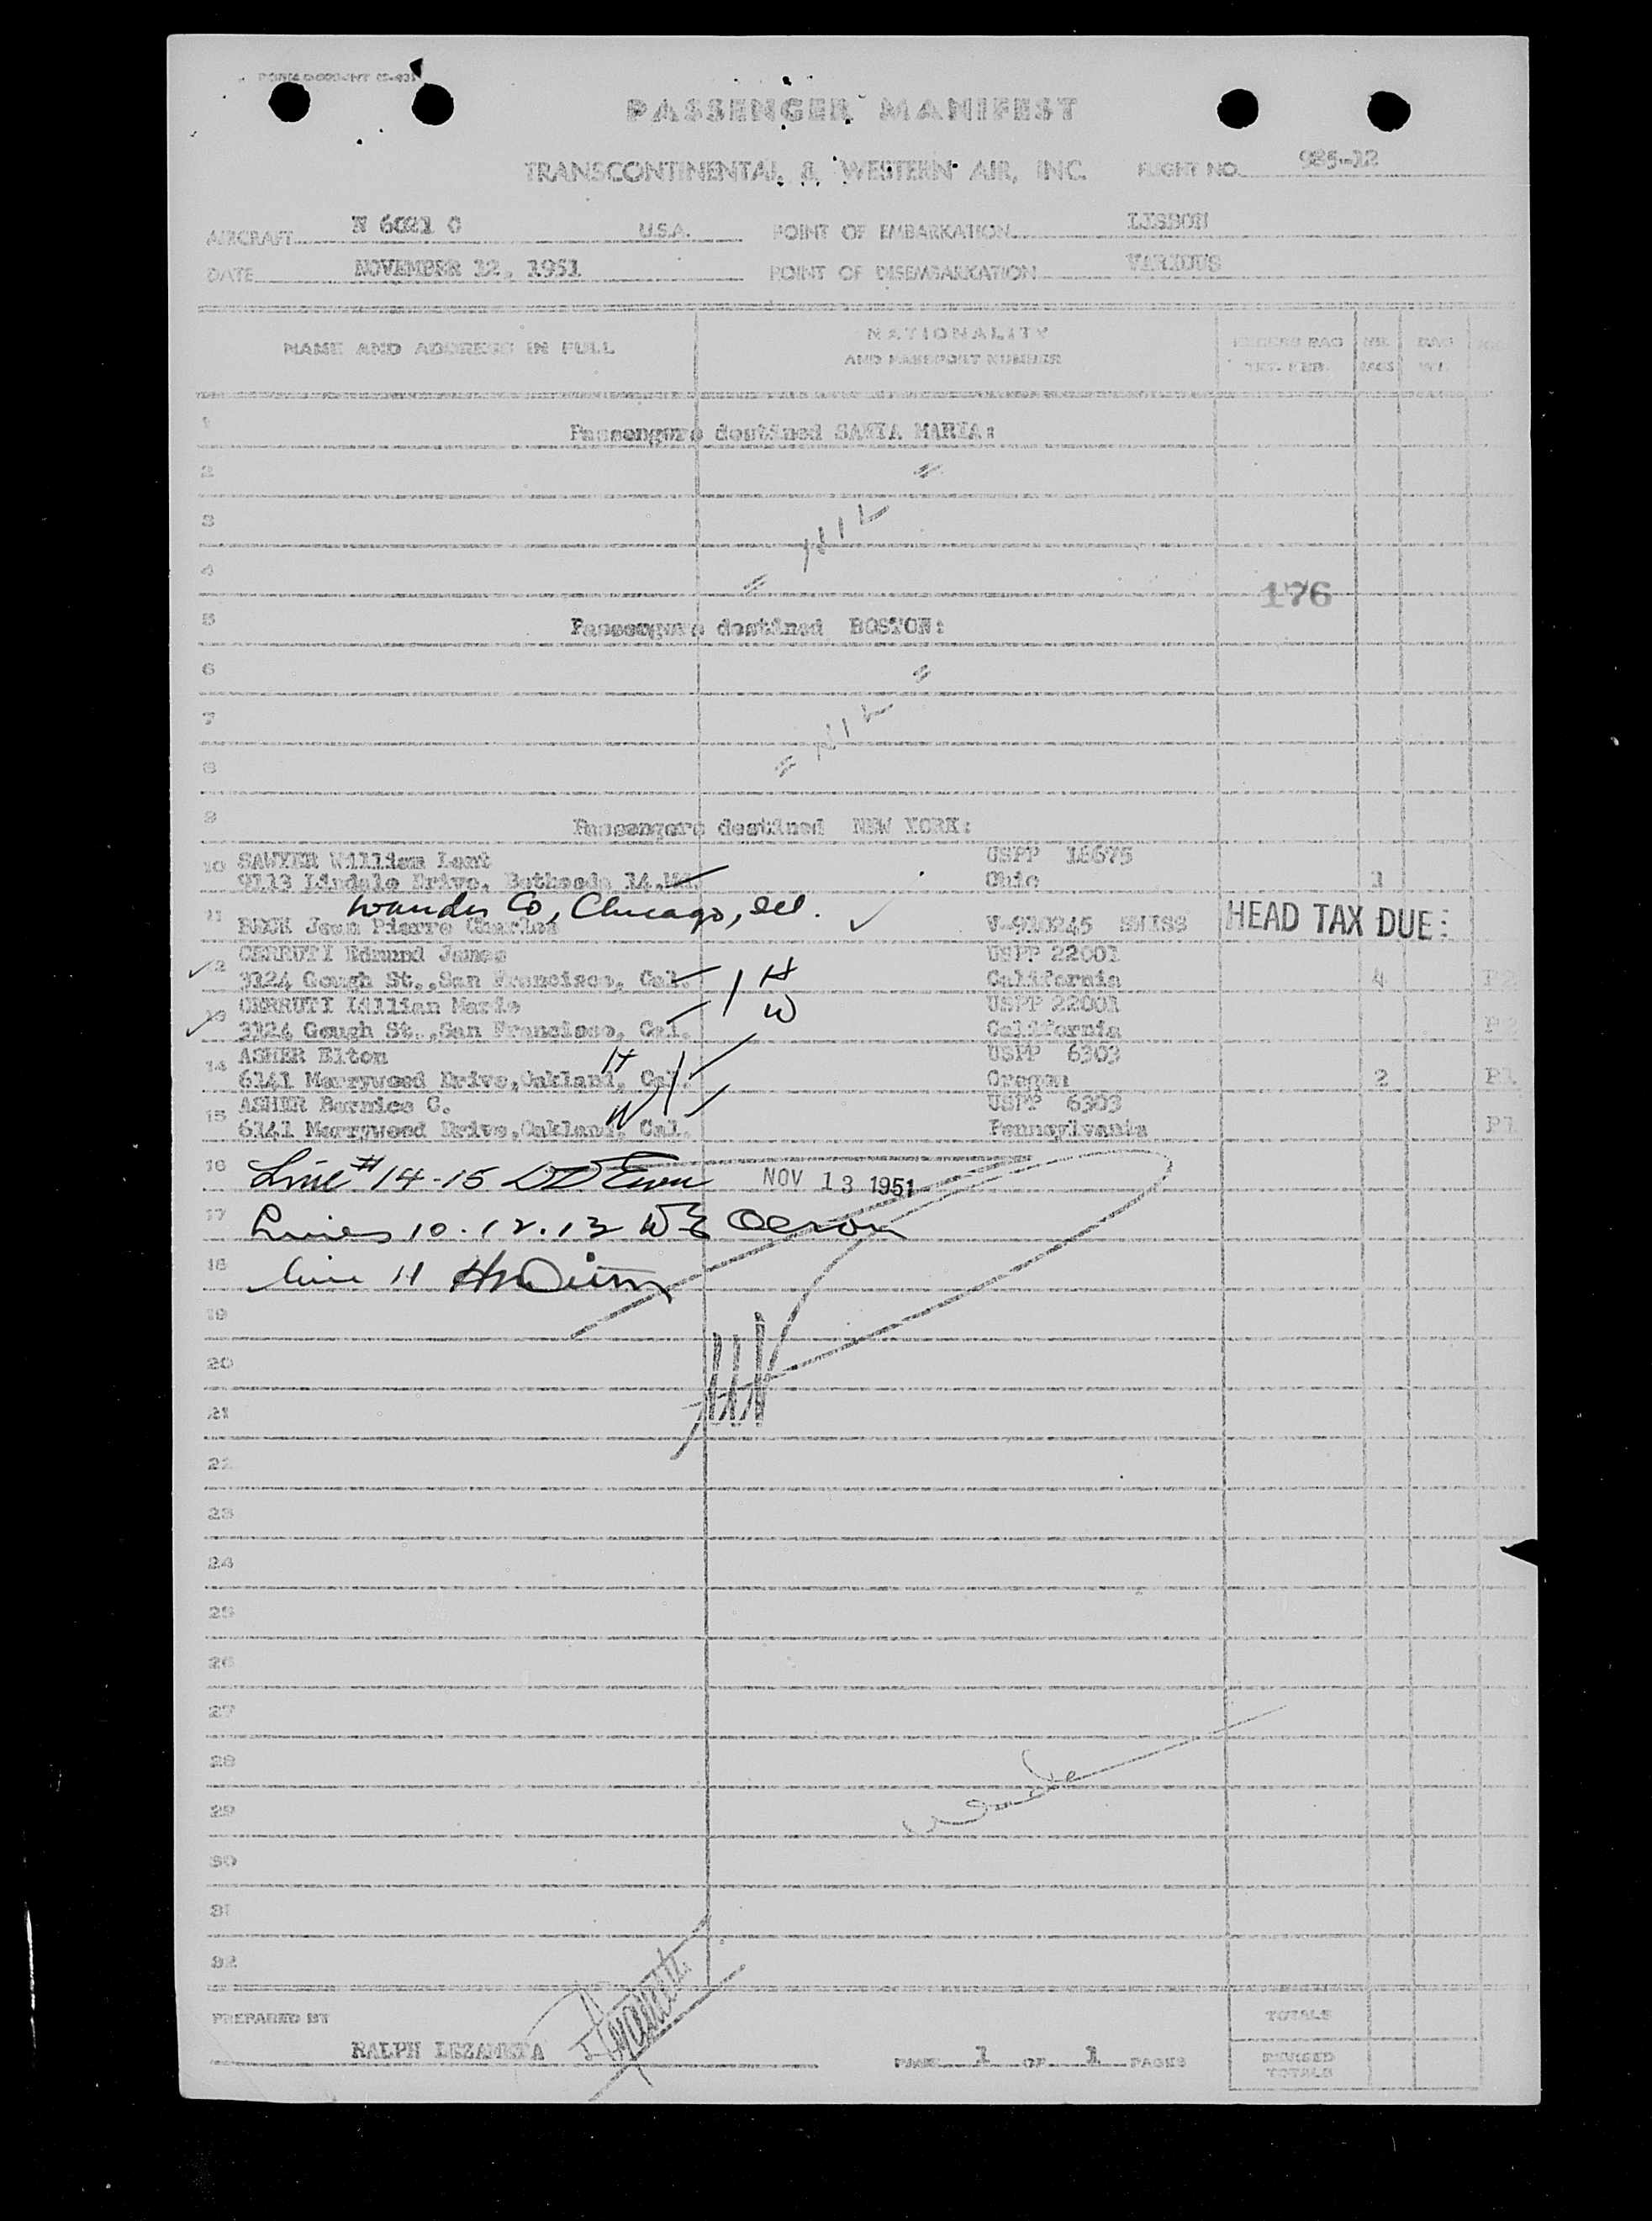 PASSENGER MANIFEST
TRANSCONTINENTAL & WESTERN AIR, INC. FLIGHT NO. 985-12
AIRCRAFT N 6021 C U.S.A. POINT OF EMBARKATION LISBON
DATE NOVEMBER 12, 1951 POINT OF DISEMBARKATION VARIOUS
NAME AND ADDRESS IN FULL
NATIONALITY
AND PASSPORT NUMBER
EXCESS BAG
TKT. NUMBER
NR.
BAGS
BAG
WT.
1 Passengers destined SANTA MARIA:
2 "
3 NIL
4 "
176
5 Passengers destined BOSTON:
6 "
7 NIL
8 "
9 Passengers destined NEW YORK:
10 SAWYER William Lent USPP 18675
9113 Lindale Drive, Bethesda 14, Md. Ohio 1
Wander Co, Chicago, Ill.
11 BECK Jean Pierre Charles SWISS
HEAD TAX DUE:
12 CERRUTI Edmund James USPP 22001
3124 Gough St., San Francisco, Cal. California 4 P2
H
13 CERRUTI Lillian Marie USPP 22001
3124 Gough St., San Francisco, Cal. California P2
W
14 ASHER Elton USPP 6303
6141 Merrywood Drive, Oakland, Cal. Oregon 2 P1
H
15 ASHER Bernice C. USPP 6303
6141 Merrywood Drive, Oakland, Cal. Pennsylvania P1
W
16 Line # 14-15 NOV 13 1951
17 Lines 10-12-13 Olson
18 Line 11
19
20
21
22
23
24
25
26
27
28
29
30
31
32
PREPARED BY
RALPH LEZAMETA
PAGE 1 OF 1 PAGES
TOTALS
REVISED
TOTALS